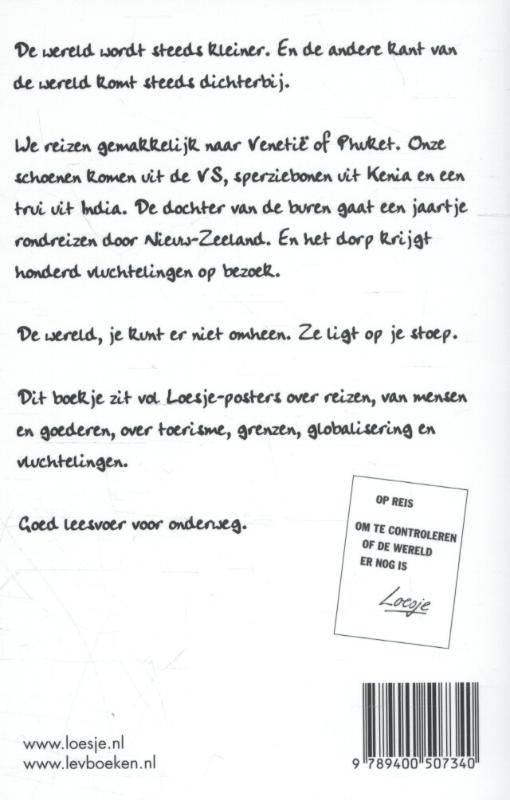 De wereld wordt steeds kleiner. En de andere kant van
de wereld komt steeds dichterbij.
We reizen gemakkelijk naar Venetië of Phuket. Onze
schoenen komen uit de VS, sperziebonen uit Kenia en een
trui uit India. De dochter van de buren gaat een jaartje
rondreizen door Nieuw-Zeeland. En het dorp krijgt
honderd vluchtelingen op bezoek.
De wereld, je kunt er niet omheen. Ze ligt op je stoep.
Dit boekje zit vol Loesje-posters over reizen, van mensen
en goederen, over toerisme, grenzen, globalisering en
vluchtelingen.
Goed leesvoer voor onderweg.
OP REIS
OM TE CONTROLEREN
OF DE WERELD
ER NOG IS
Loesje
www.loesje.nl
www.levboeken.nl
9 789400 507340